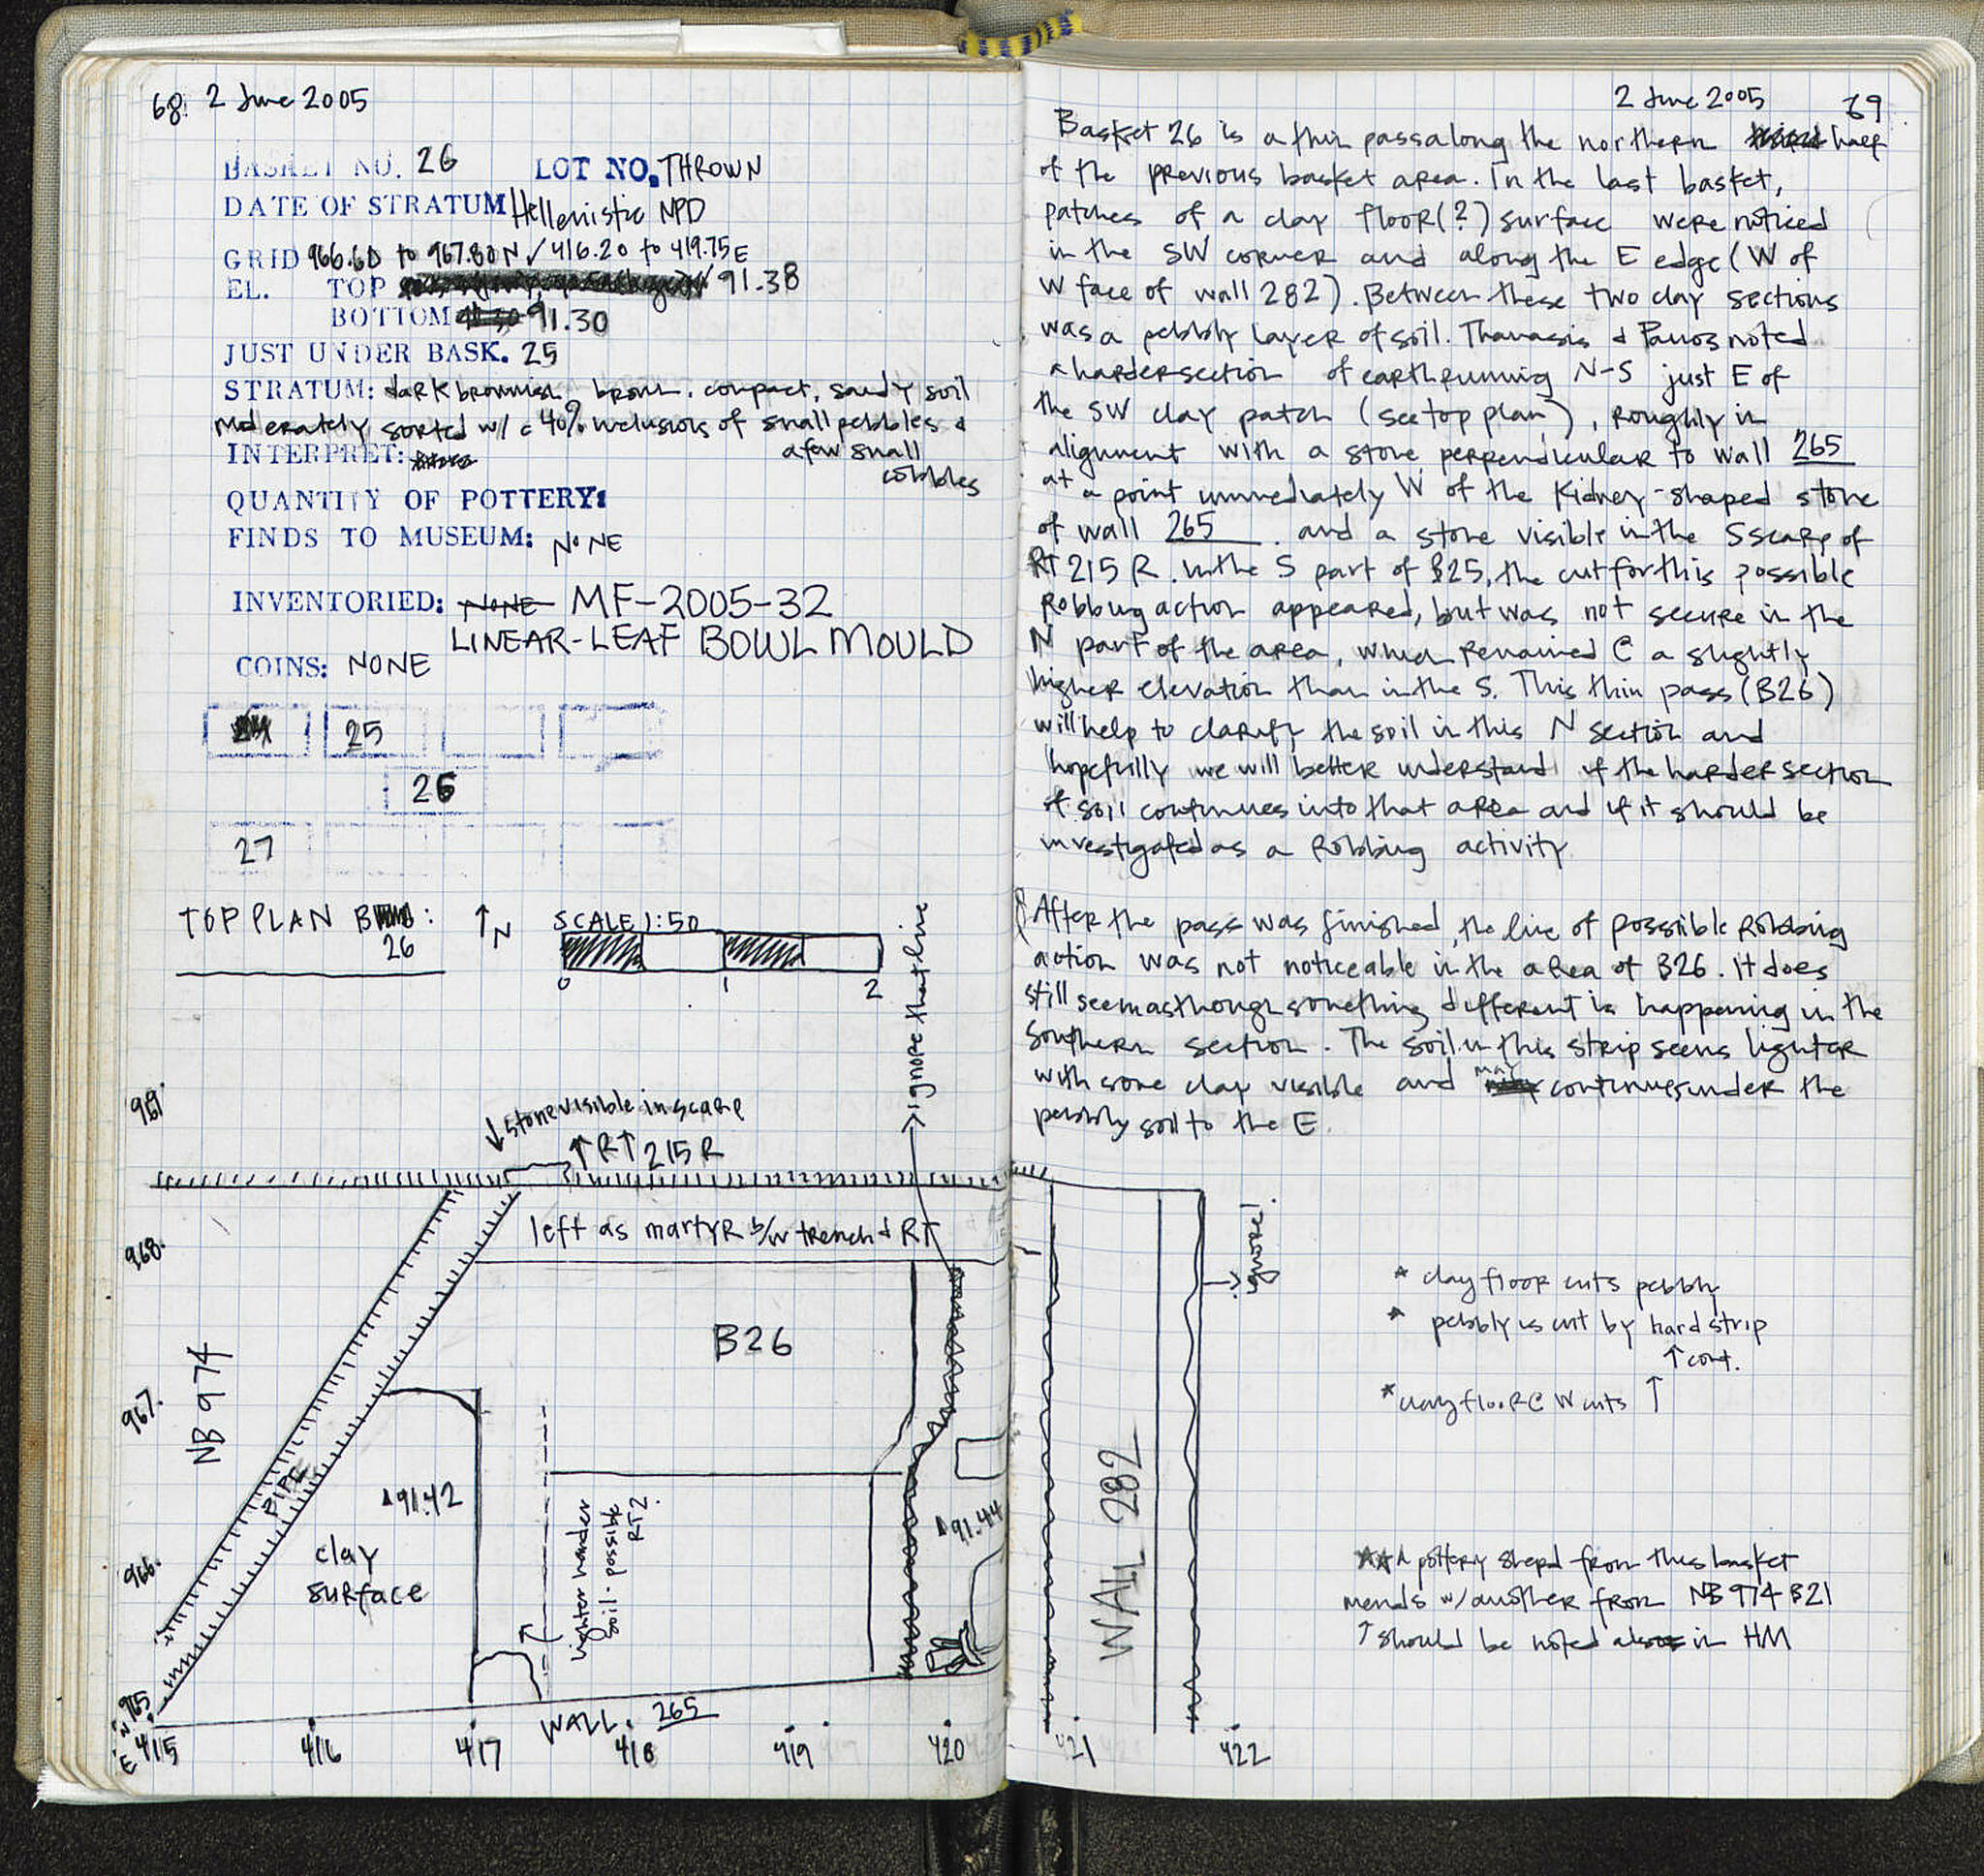 68. 2 June 2005
BASKET NO. 26 LOT NO. THROWN
DATE OF STRATUM Hellenistic NPD
GRID 966.60 to 967.80 N / 416.20 to 419.75 E
EL. TOP 91.38
BOTTOM 91.30
JUST UNDER BASK. 25
STRATUM: dark brownish brown, compact, sandy soil
moderately sorted w/ c 40% inclusions of small pebbles &
a few small
cobbles
INTERPRET:
QUANTITY OF POTTERY:
FINDS TO MUSEUM: NONE
INVENTORIED: NONE MF-2005-32
LINEAR-LEAF BOWL MOULD
COINS: NONE
25
26
27
TOP PLAN B :
26
↑N
SCALE 1:50
0 1 2
→ ignore that line
969.
↓ stone visible in scarp
↑ RT ↑ 215 R
968.
left as martyr b/w trench & RT
B26
967.
NB 974
PIPE
91.42
clay
surface
966.
lighter harder
soil - possible
RT?
91.44
965
N
E
WALL 265
415 416 417 418 419 420
2 June 2005 69
Basket 26 is a thin pass along the northern half
of the previous basket area. In the last basket,
patches of a clay floor(?) surface were noticed
in the SW corner and along the E edge (W of
W face of wall 282). Between these two clay sections
was a pebbly layer of soil. Thanasis & Panos noted
a harder section of earth running N-S just E of
the SW clay patch (see top plan), roughly in
alignment with a stone perpendicular to wall 265
at a point immediately W of the kidney-shaped stone
of wall 265 and a stone visible in the S scarp of
RT 215 R. In the S part of B25, the cut for this possible
robbing action appeared, but was not secure in the
N part of the area, which remained @ a slightly
higher elevation than in the S. This thin pass (B26)
will help to clarify the soil in this N section and
hopefully we will better understand if the harder section
of soil continues into that area and if it should be
investigated as a robbing activity
After the pass was finished, the line of possible robbing
action was not noticeable in the area of B26. It does
still seem as though something different is happening in the
southern section. The soil in this strip seems lighter
with some clay visible and may continues under the
pebbly soil to the E.
→ ignore!
WALL 282
421 422
* clay floor cuts pebbly
* pebbly is cut by hard strip
↑ cont.
* clay floor @ W cuts ↑
** A pottery sherd from this basket
mends w/ another from NB 974 B21
↑ should be noted also in HM